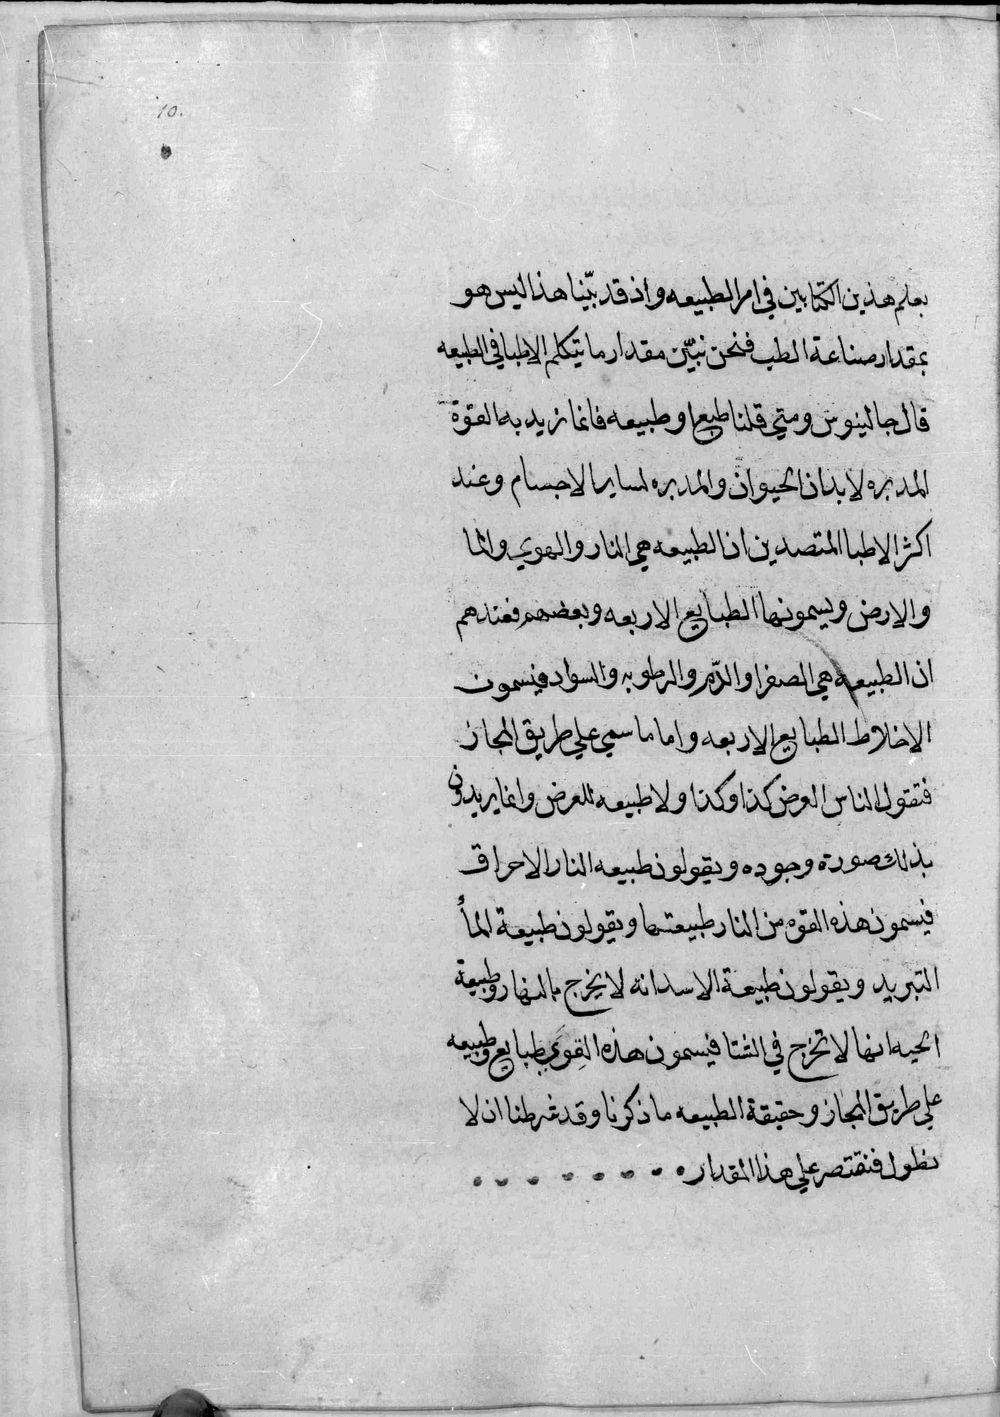 10.
بعلم هذين الكتابين في امر الطبيعه واذ قد بيّنا هذا ليس هو
بمقدار صناعة الطب فنحن نبيّن مقدار ما يتكلم الاطبا في الطبيعه
قال جالينوس ومتي قلنا طبع او طبيعه فانما نريد به القوة
المدبره لابدان الحيوان والمدبره لساير الاجسام وعند
اكثر الاطبا المتصدين ان الطبيعه هي النار والهوي والما
والارض ويسمونها الطبايع الاربعه وبعضهم فعندهم
ان الطبيعه هي الصفرا والدّم والرطوبه والسواد فيسمون
الاخلاط الطبايع الاربعه واما ما سمي علي طريق المجاز
فتقول الناس العرض كذا وكذا ولا طبيعه للعرض وانما يريدون
بذلك صورة وجوده ويقولون طبيعه النار الاحراق
فيسمون هذه القوه من النار طبيعتها ويقولون طبيعة المأ
التبريد ويقولون طبيعة الاسد انه لا يخرج بالنهار وطبيعة
الحيه انها لا تخرج في الشتا فيسمون هذه القوَي طبايع وطبيعه
علي طريق المجاز وحقيقة الطبيعه ما ذكرنا وقد شرطنا ان لا
نطول فنقتصر علي هذا المقدار